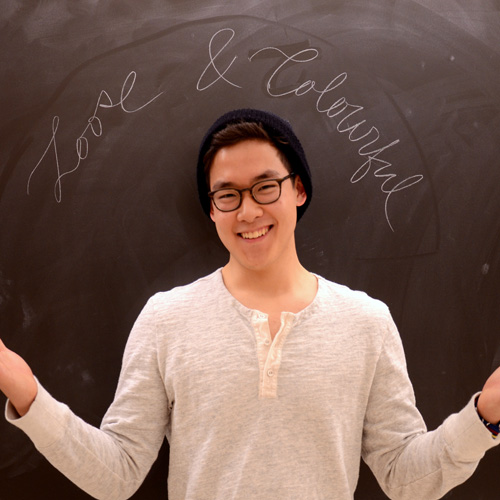 Loose & Colourful